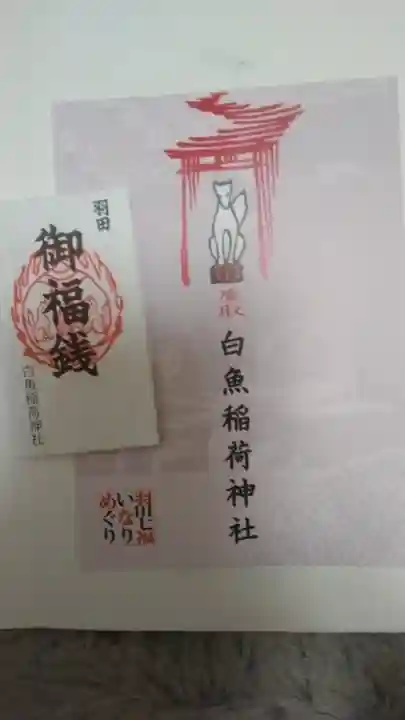 羽田
御福銭
白魚稲荷神社
参拝
白魚稲荷神社
羽田七福
いなり
めぐり